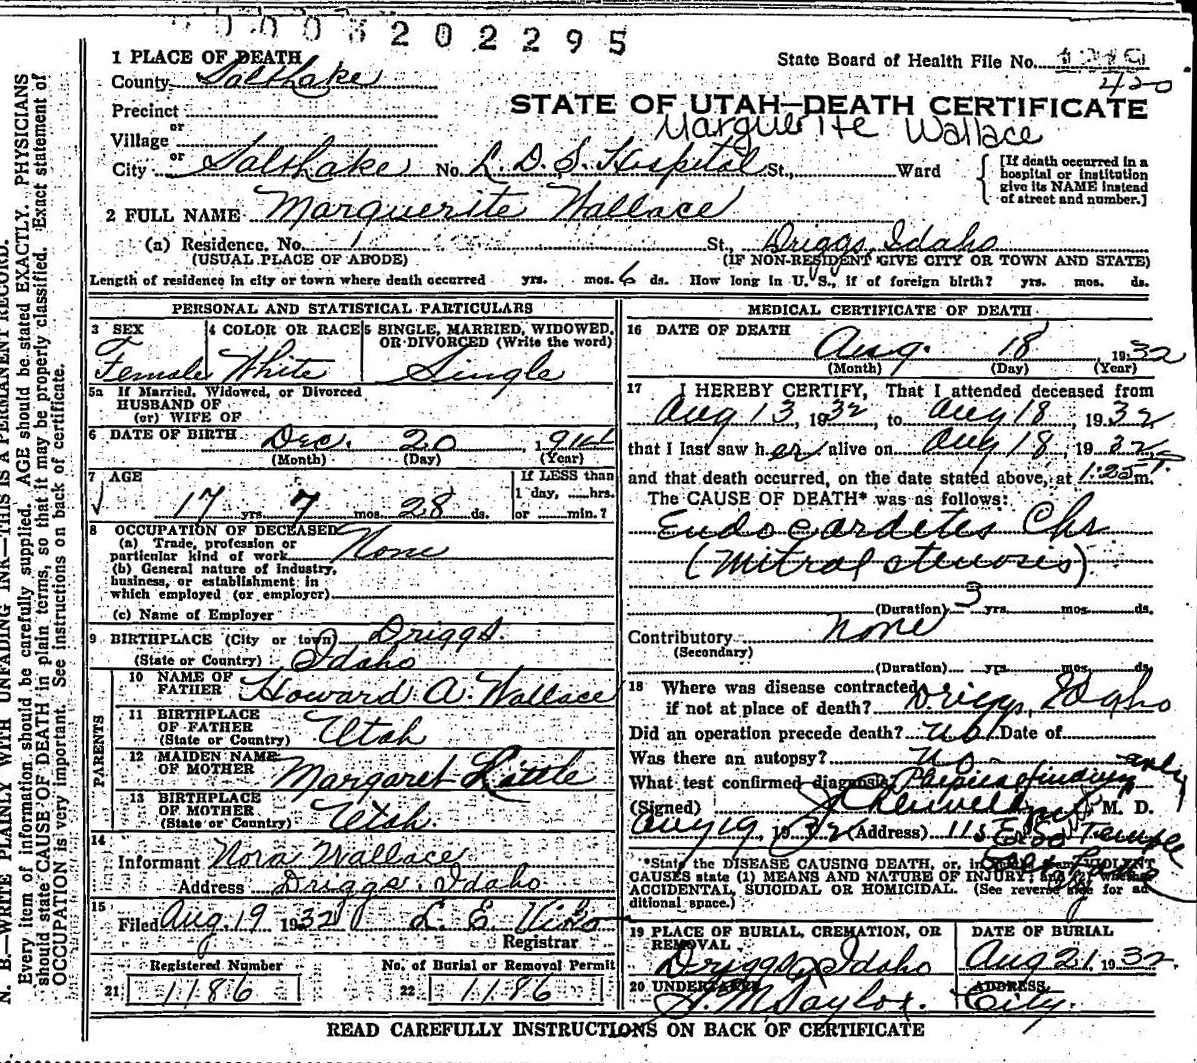 0003202295
1 PLACE OF DEATH
State Board of Health File No.
County Salt Lake
420
Precinct
STATE OF UTAH—DEATH CERTIFICATE
or
Marguerite Wallace
Village
or
City Salt Lake No. L. D. S. Hospital St., Ward
[If death occurred in a hospital or institution give its NAME instead of street and number.]
2 FULL NAME Marguerite Wallace
(a) Residence. No. St., Driggs, Idaho
(USUAL PLACE OF ABODE) (IF NON-RESIDENT GIVE CITY OR TOWN AND STATE)
Length of residence in city or town where death occurred yrs. mos. 6 ds. How long in U. S., if of foreign birth? yrs. mos. ds.
PERSONAL AND STATISTICAL PARTICULARS
3 SEX
Female
4 COLOR OR RACE
White
5 SINGLE, MARRIED, WIDOWED, OR DIVORCED (Write the word)
Single
5a If Married, Widowed, or Divorced
HUSBAND OF
(or) WIFE OF
6 DATE OF BIRTH Dec. 20 1914
(Month) (Day) (Year)
7 AGE
17 yrs 7 mos. 28 ds.
If LESS than
1 day, ......hrs.
or ......min.?
8 OCCUPATION OF DECEASED
(a) Trade, profession or
particular kind of work None
(b) General nature of industry,
business, or establishment in
which employed (or employer)
(c) Name of Employer
9 BIRTHPLACE (City or town) Driggs.
(State or Country) Idaho
PARENTS
10 NAME OF FATHER Howard A. Wallace
11 BIRTHPLACE OF FATHER (State or Country) Utah
12 MAIDEN NAME OF MOTHER Margaret Little
13 BIRTHPLACE OF MOTHER (State or Country) Utah.
14
Informant Nora Wallace
Address Driggs, Idaho
15
Filed Aug. 19 1932 L. E.
Registrar
Registered Number No. of Burial or Removal Permit
21 1186 22 1186
MEDICAL CERTIFICATE OF DEATH
16 DATE OF DEATH
Aug. 18, 1932
(Month) (Day) (Year)
17 I HEREBY CERTIFY, That I attended deceased from
Aug 13, 1932, to Aug 18, 1932
that I last saw her alive on Aug 18, 1932,
and that death occurred, on the date stated above, at 1:25 P.m.
The CAUSE OF DEATH* was as follows:
Endocardetes Chr
(Mitral stenosis)
(Duration) 3 yrs. mos. ds.
Contributory none
(Secondary)
(Duration) yrs. mos. ds.
18 Where was disease contracted
if not at place of death? Driggs, Idaho
Did an operation precede death? No. Date of
Was there an autopsy? No
What test confirmed diagnosis? Physical findings only
(Signed) M. D.
Aug 19, 1932 (Address) 115 E. So Temple
Salt Lake
*State the DISEASE CAUSING DEATH, or, in VIOLENT
CAUSES state (1) MEANS AND NATURE OF INJURY; and (2) whether
ACCIDENTAL, SUICIDAL OR HOMICIDAL. (See reverse side for additional space.)
19 PLACE OF BURIAL, CREMATION, OR REMOVAL
Driggs, Idaho
DATE OF BURIAL
Aug 21, 1932.
20 UNDERTAKER
S. M. Taylor.
ADDRESS
City.
READ CAREFULLY INSTRUCTIONS ON BACK OF CERTIFICATE
N. B.—WRITE PLAINLY WITH UNFADING INK—THIS IS A PERMANENT RECORD.
Every item of information should be carefully supplied. AGE should be stated EXACTLY. PHYSICIANS
should state CAUSE OF DEATH in plain terms, so that it may be properly classified. Exact statement of
OCCUPATION is very important. See instructions on back of certificate.